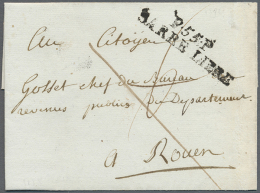 P.55.P
SARRE LIBRE
Au Citoyen
Gosset chef du Bureau
revenus publics du Departement
a Rouen